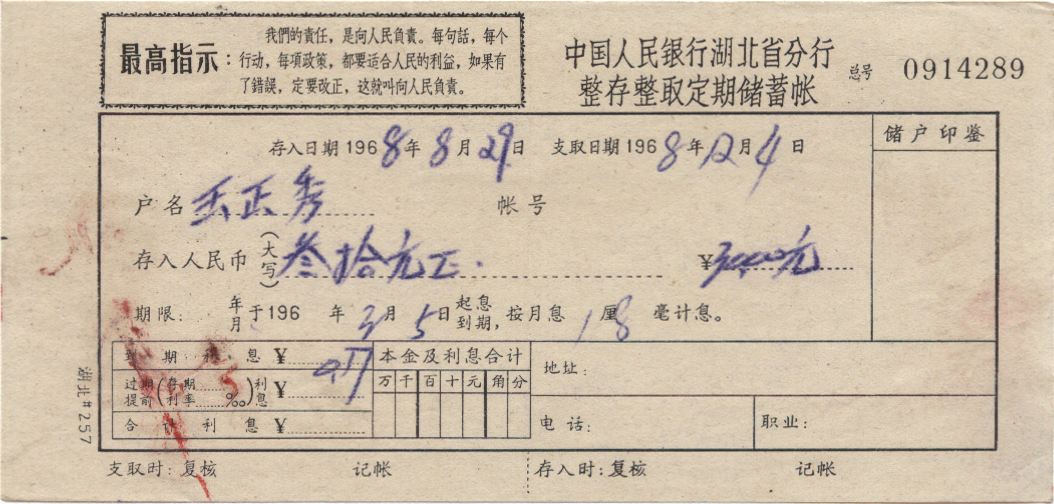 最高指示:
我們的責任，是向人民負責。每句話，每个
行动，每項政策，都要适合人民的利益，如果有
了錯誤，定要改正，这就叫向人民負責。
中国人民银行湖北省分行
整存整取定期储蓄帐
总号 0914289
存入日期 1968年8月29日 支取日期 1968年12月4日
储户印鉴
户名 王正秀 帐号
存入人民币(大写) 叁拾元正. ¥3000元
期限: 年月 于196 年3月5日 起息到期, 按月息1厘8毫计息。
到期利息 ¥ 0.17
本金及利息合计
地址:
过期提前(存期利率‰)利息 ¥
万 千 百 十 元 角 分
合计利息 ¥
电话: 职业:
湖北#257
支取时: 复核 记帐 存入时: 复核 记帐